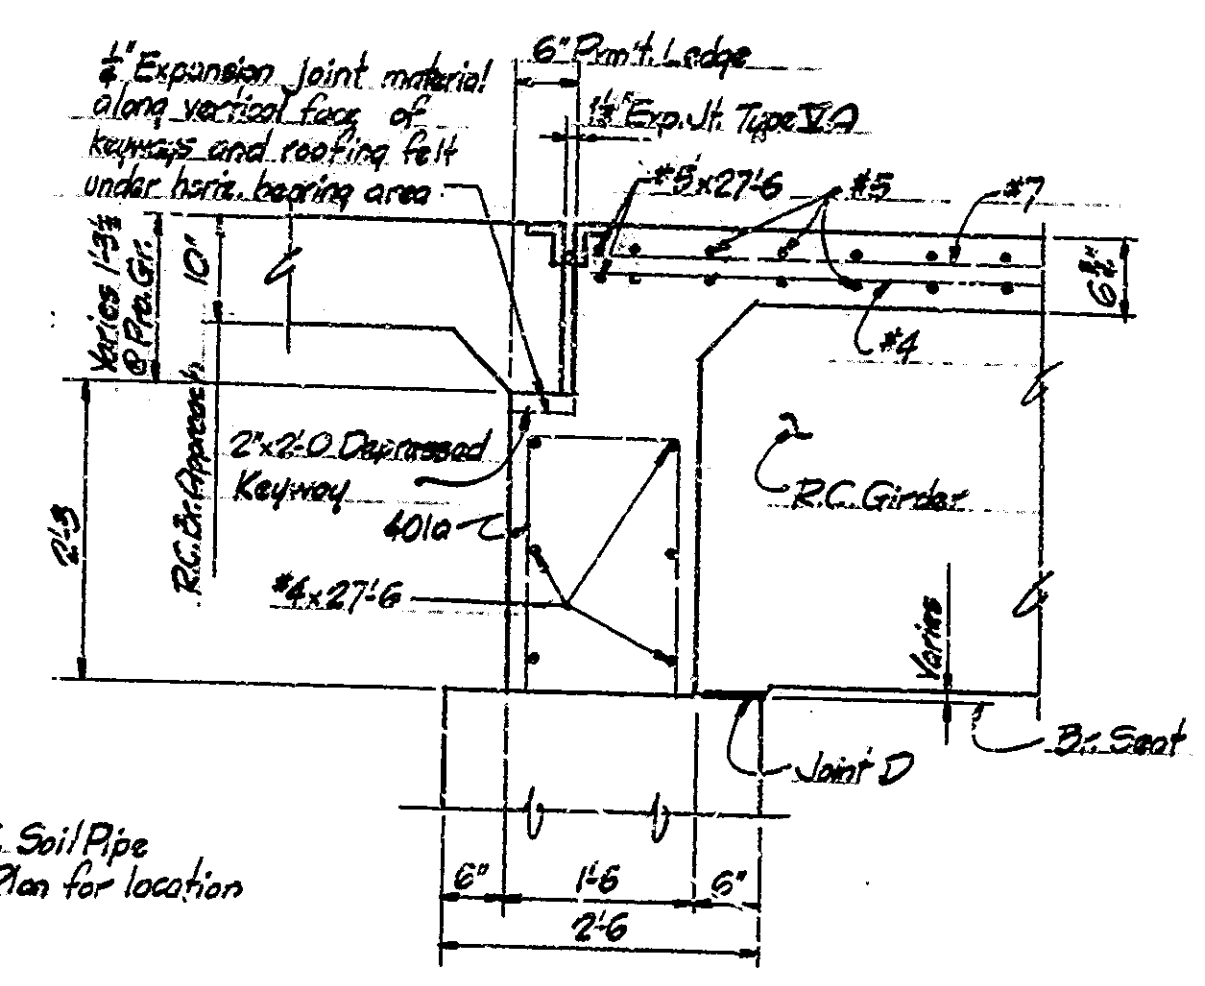 1/4" Expansion joint material
along vertical face of
keyways and roofing felt
under horiz. bearing area
6" Pvm't. Ledge
Exp. Jt. Type VA
#5x27'-6
#5
#7
Varies 1'-3 1/2
@ Pro. Gr.
10"
R.C. Br. Approach
6 1/2"
#4
2"x2'-0 Depressed
Keyway
2
R.C. Girder
401a
2'-3
#4x27'-6
Varies
Br. Seat
Joint D
Soil Pipe
Plan for location
6"
1'-6
6"
2'-6